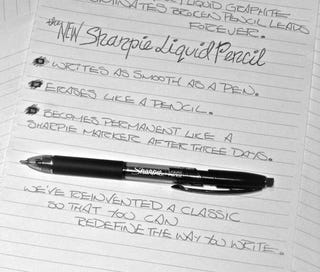 LIQUID GRAPHITE
ELIMINATES BROKEN PENCIL LEADS
FOREVER.
the NEW Sharpie Liquid Pencil
WRITES AS SMOOTH AS A PEN.
ERASES LIKE A PENCIL.
BECOMES PERMANENT LIKE A
SHARPIE MARKER AFTER THREE DAYS.
Sharpie
WE'VE REINVENTED A CLASSIC
SO THAT YOU CAN
REDEFINE THE WAY YOU WRITE.